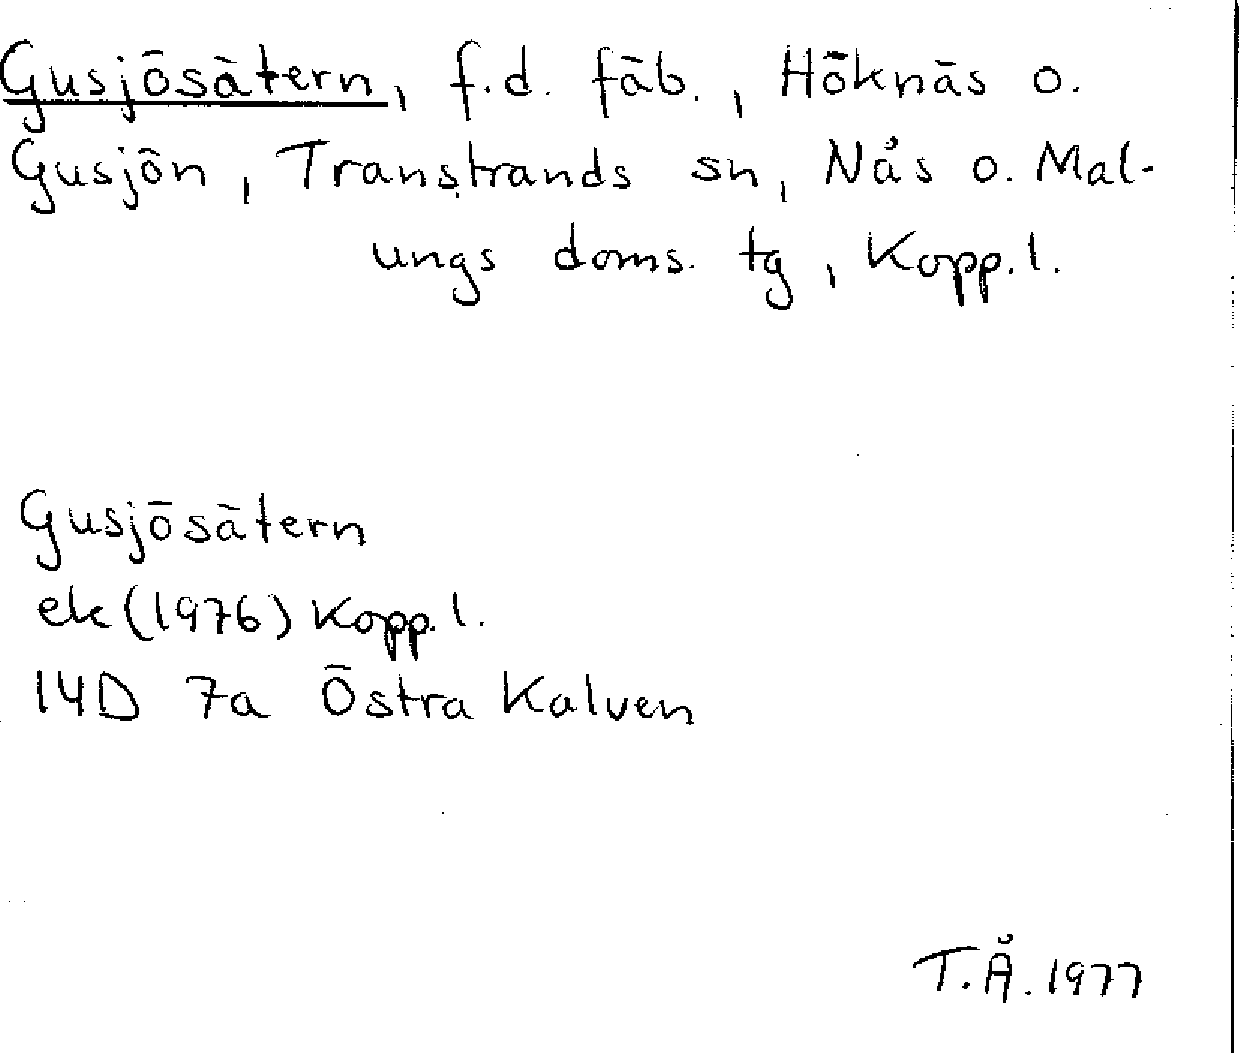 Gusjösätern, f.d. fäb., Höknäs o.
Gusjön, Transtrands sn, Nås o. Mal-
ungs doms. tg, Kopp. l.
Gusjösätern
ek (1976) Kopp. l.
14D 7a Östra Kalven
T.Å. 1977